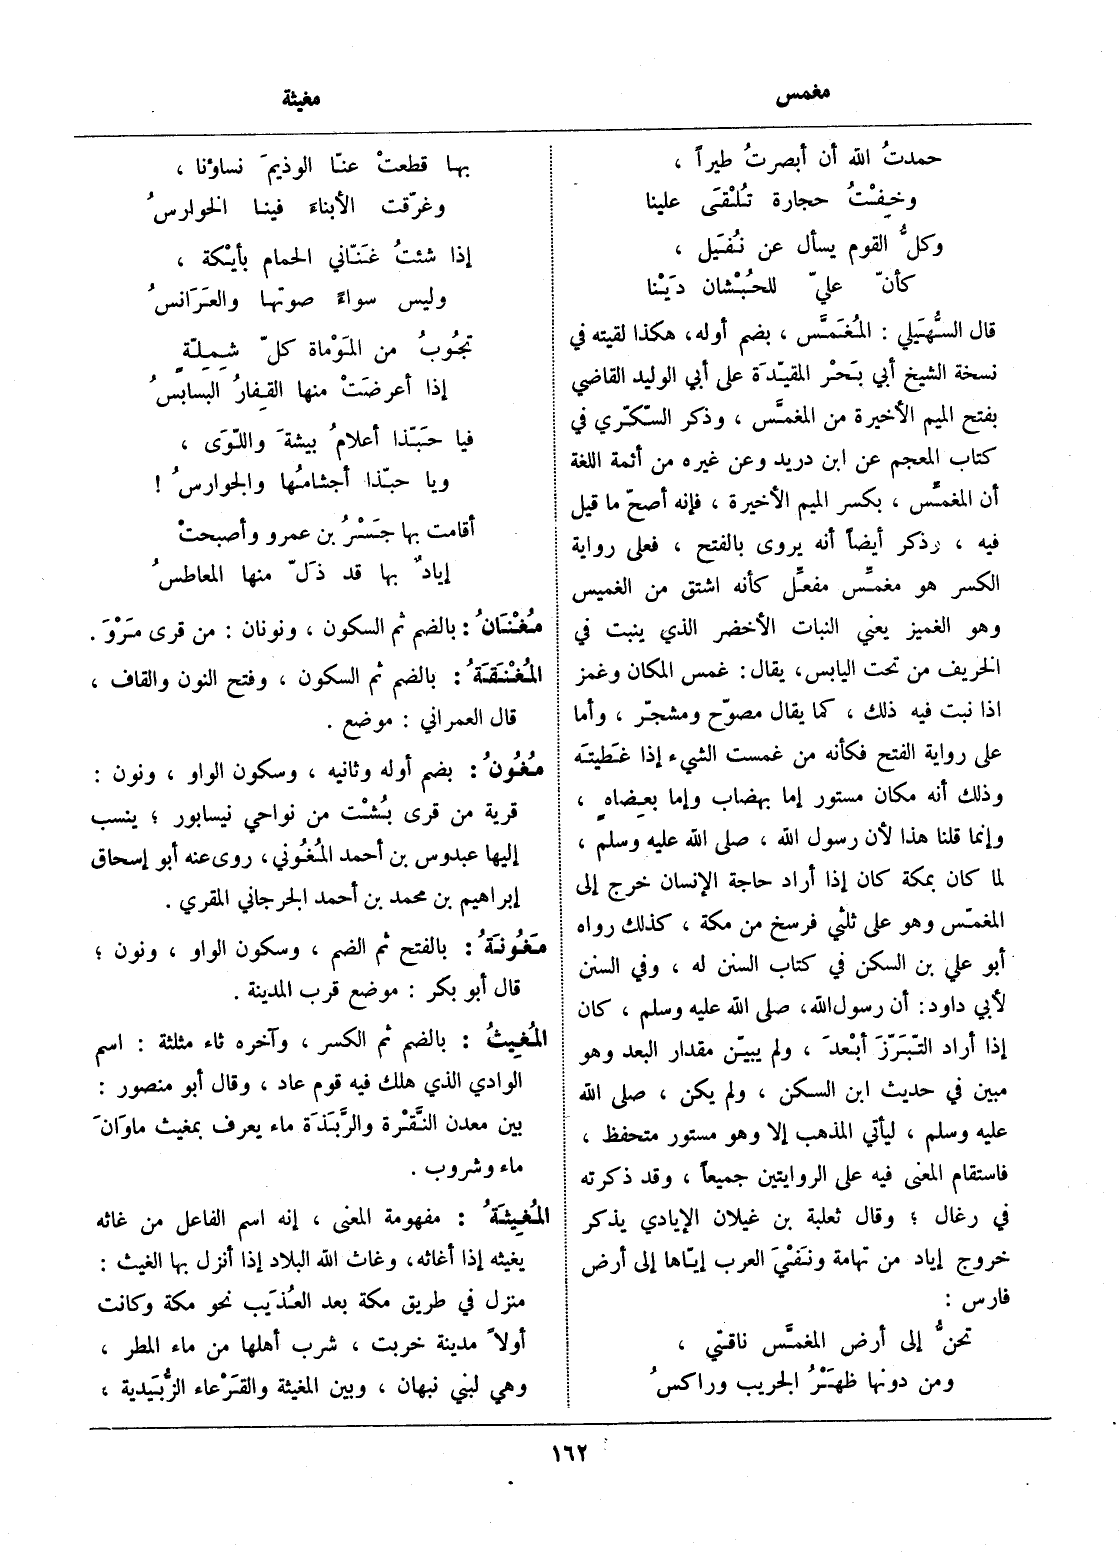 مغمس
مغيثة
حمدتُ الله أن أبصرتُ طيراً ،
وخِفْتُ حجارة تُلْقَى علينا
وكلُّ القوم يسأل عن نُفَيل ،
كأنّ عليّ للحُبْشان دَيْنا
قال السُّهَيلي : المُغَمَّس ، بضم أوله، هكذا لقيته في
نسخة الشيخ أبي بَحْر المقيّدَة على أبي الوليد القاضي
بفتح الميم الأخيرة من المغمَّس ، وذكر السّكّري في
كتاب المعجم عن ابن دريد وعن غيره من أئمة اللغة
أن المغمِّس ، بكسر الميم الأخيرة ، فإنه أصحّ ما قيل
فيه ، وذكر أيضاً أنه يروى بالفتح ، فعلى رواية
الكسر هو مغمِّس مفعِّل كأنه اشتق من الغميس
وهو الغميز يعني النبات الأخضر الذي ينبت في
الخريف من تحت اليابس، يقال : غمس المكان وغمز
اذا نبت فيه ذلك ، كما يقال مصوّح ومشجّر ، وأما
على رواية الفتح فكأنه من غمست الشيء إذا غَطيتَه
وذلك أنه مكان مستور إما بهضاب وإما بعِضاهٍ ،
وإنما قلنا هذا لأن رسول الله ، صلى الله عليه وسلم ،
لما كان بمكة كان إذا أراد حاجة الإنسان خرج إلى
المغمّس وهو على ثلثي فرسخ من مكة ، كذلك رواه
أبو علي بن السكن في كتاب السنن له ، وفي السنن
لأبي داود : أن رسول الله، صلى الله عليه وسلم ، كان
إذا أراد التَبَرّزَ أبْعدَ ، ولم يبيّن مقدار البعد وهو
مبين في حديث ابن السكن ، ولم يكن ، صلى الله
عليه وسلم ، ليأتي المذهب إلا وهو مستور متحفظ ،
فاستقام المعنى فيه على الروايتين جميعاً ، وقد ذكرته
في رغال ؛ وقال ثعلبة بن غيلان الإيادي يذكر
خروج إياد من تهامة ونَفْيَ العرب إيّاها إلى أرض
فارس :
تحنُّ إلى أرض المغمَّس ناقتي ،
ومن دونها ظهْرُ الجريب وراكسُ
بها قطعتْ عنّا الوذيمَ نساؤنا ،
وغرّقت الأبناءَ فينا الخوارسُ
إذا شئتُ غَنّاني الحمام بأيْكة ،
وليس سواءً صوتها والعَرَانسُ
تجُوبُ من المَوْماة كلّ شِمِلّةٍ
إذا أعرضَتْ منها القِفارُ البسابسُ
فيا حَبّذا أعلامُ بيشةَ واللّوَى ،
ويا حبّذا أجشامُها والجوارسُ !
أقامت بها جَسْرُ بن عمرو وأصبحتْ
إيادٌ بها قد ذلّ منها المعاطسُ
مُغْنَانُ : بالضم ثم السكون ، ونونان : من قرى مَرْوَ .
المُغْنَقَةُ : بالضم ثم السكون ، وفتح النون والقاف ،
قال العمراني : موضع .
مُغُونُ : بضم أوله وثانيه ، وسكون الواو ، ونون :
قرية من قرى بُشْت من نواحي نيسابور ؛ ينسب
إليها عبدوس بن أحمد المُغُوني، روى عنه أبو إسحاق
إبراهيم بن محمد بن أحمد الجرجاني المقري .
مَغُونَةُ : بالفتح ثم الضم ، وسكون الواو ، ونون ؛
قال أبو بكر : موضع قرب المدينة .
المُغِيثُ : بالضم ثم الكسر ، وآخره ثاء مثلثة : اسم
الوادي الذي هلك فيه قوم عاد ، وقال أبو منصور :
بين معدن النَّقْرة والرَّبَذَة ماء يعرف بمغيث ماوَانَ
ماء وشروب .
المُغِيثَةُ : مفهومة المعنى ، إنه اسم الفاعل من غاثه
يغيثه إذا أغاثه، وغاث الله البلاد إذا أنزل بها الغيث :
منزل في طريق مكة بعد العُذَيب نحو مكة وكانت
أولاً مدينة خربت ، شرب أهلها من ماء المطر ،
وهي لبني نبهان ، وبين المغيثة والقَرْعاء الزُّبَيدية ،
١٦٢